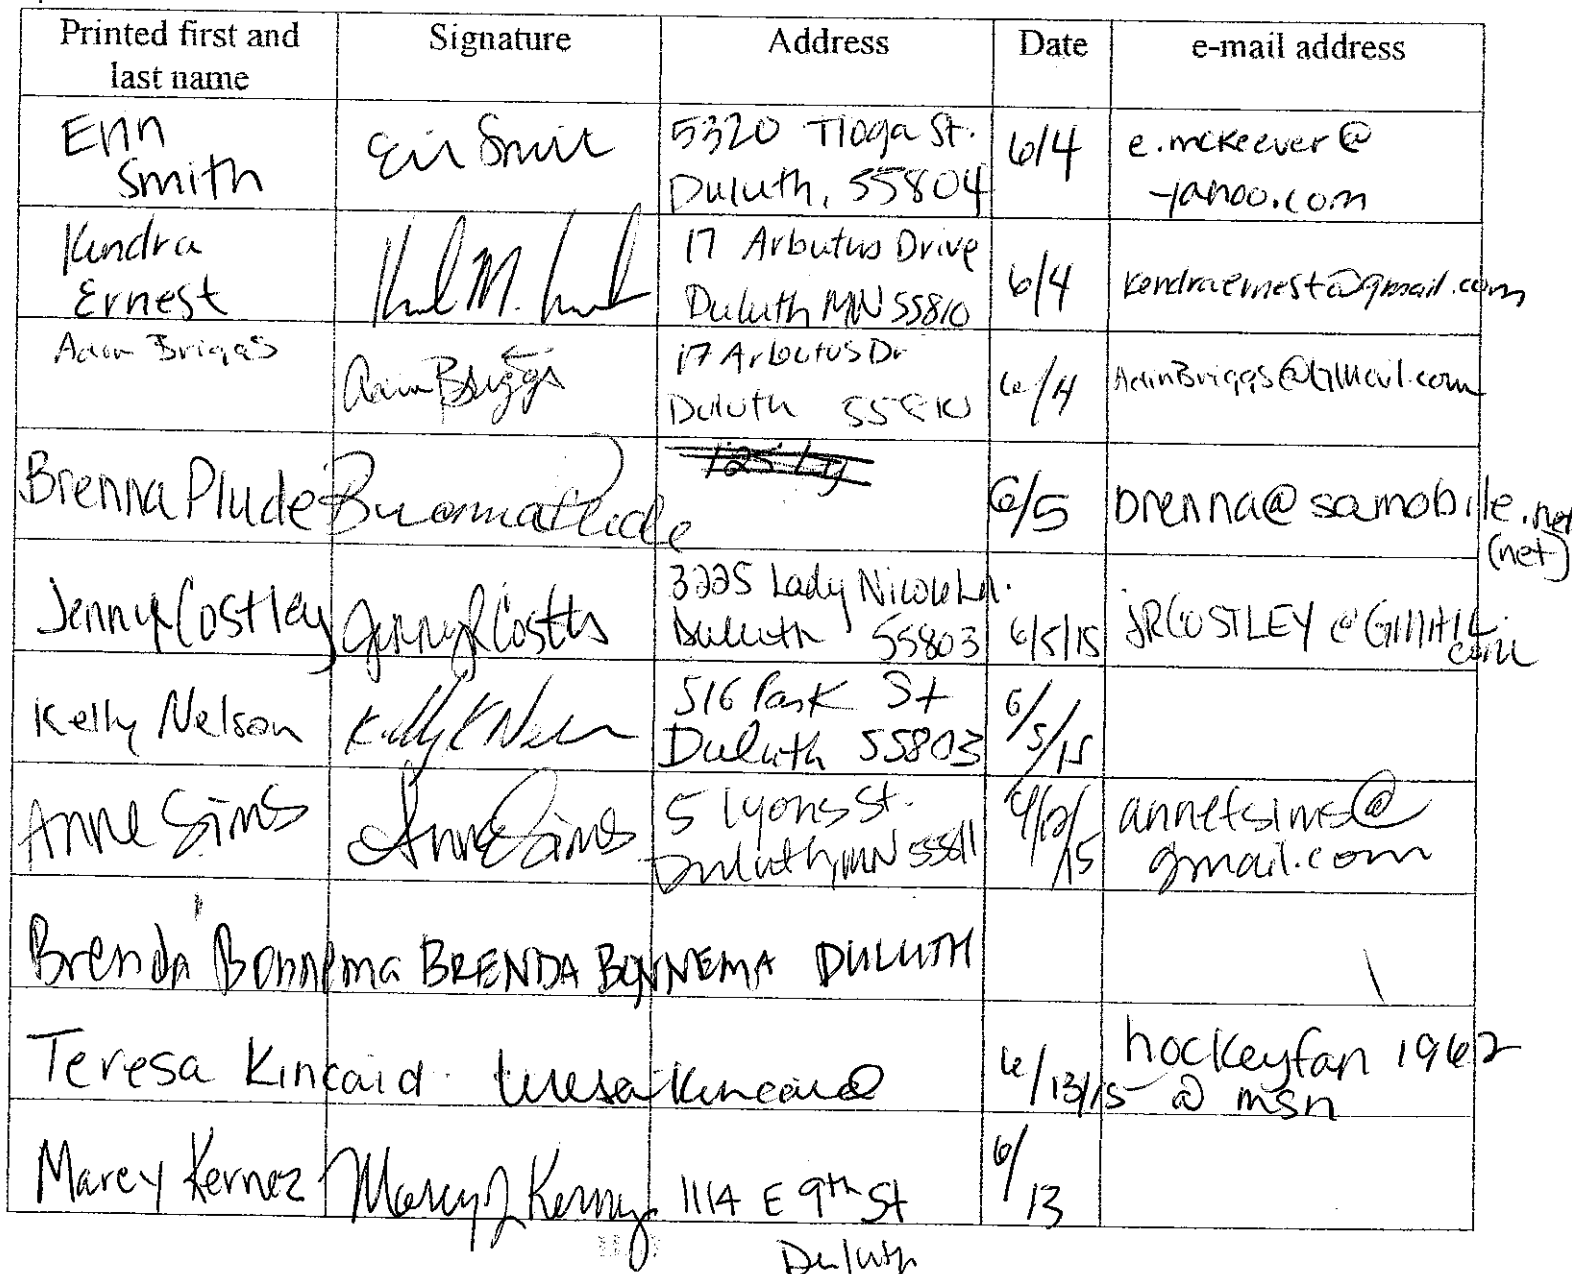 Printed first and last name Signature Address Date e-mail address
Erin Smith Erin Smith 5320 Tioga St. Duluth, 55804 6/4 e.mckeever@yahoo.com
Kendra Ernest 17 Arbutus Drive Duluth MN 55810 6/4 kendraernest@gmail.com
Adin Briggs Adin Briggs 17 Arbutus Dr Duluth 55810 6/4 AdinBriggs@GMail.com
Brenna Plude Brenna Plude 6/5 brenna@samobile.net (net)
Jenny Costley Jenny R Costley 3225 Lady Nicole Ln. Duluth 55803 6/5/15 JRCOSTLEY@GMAIL.com
Kelly Nelson Kelly K Nelson 516 Park St Duluth 55803 6/5/15
Anne Sims Anne Sims 5 Lyons St. Duluth, MN 55811 6/12/15 annetsims@gmail.com
Brenda Bonnema BRENDA BONNEMA DULUTH
Teresa Kincaid Teresa Kincaid 6/13/15 hockeyfan1962@msn
Marcy Kernez Marcy J Kernez 1114 E 9th St Duluth 6/13